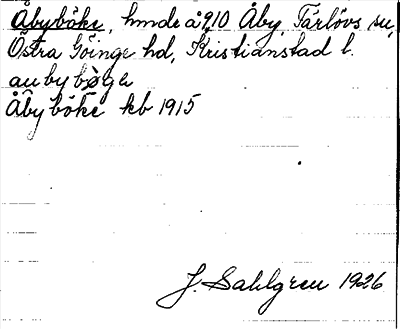 Åbyböke, hmde å 910 Åby, Färlövs sn,
Östra Göinge hd, Kristianstad l.
au by bøge
Åby böke kb 1915
J. Sahlgren 1926